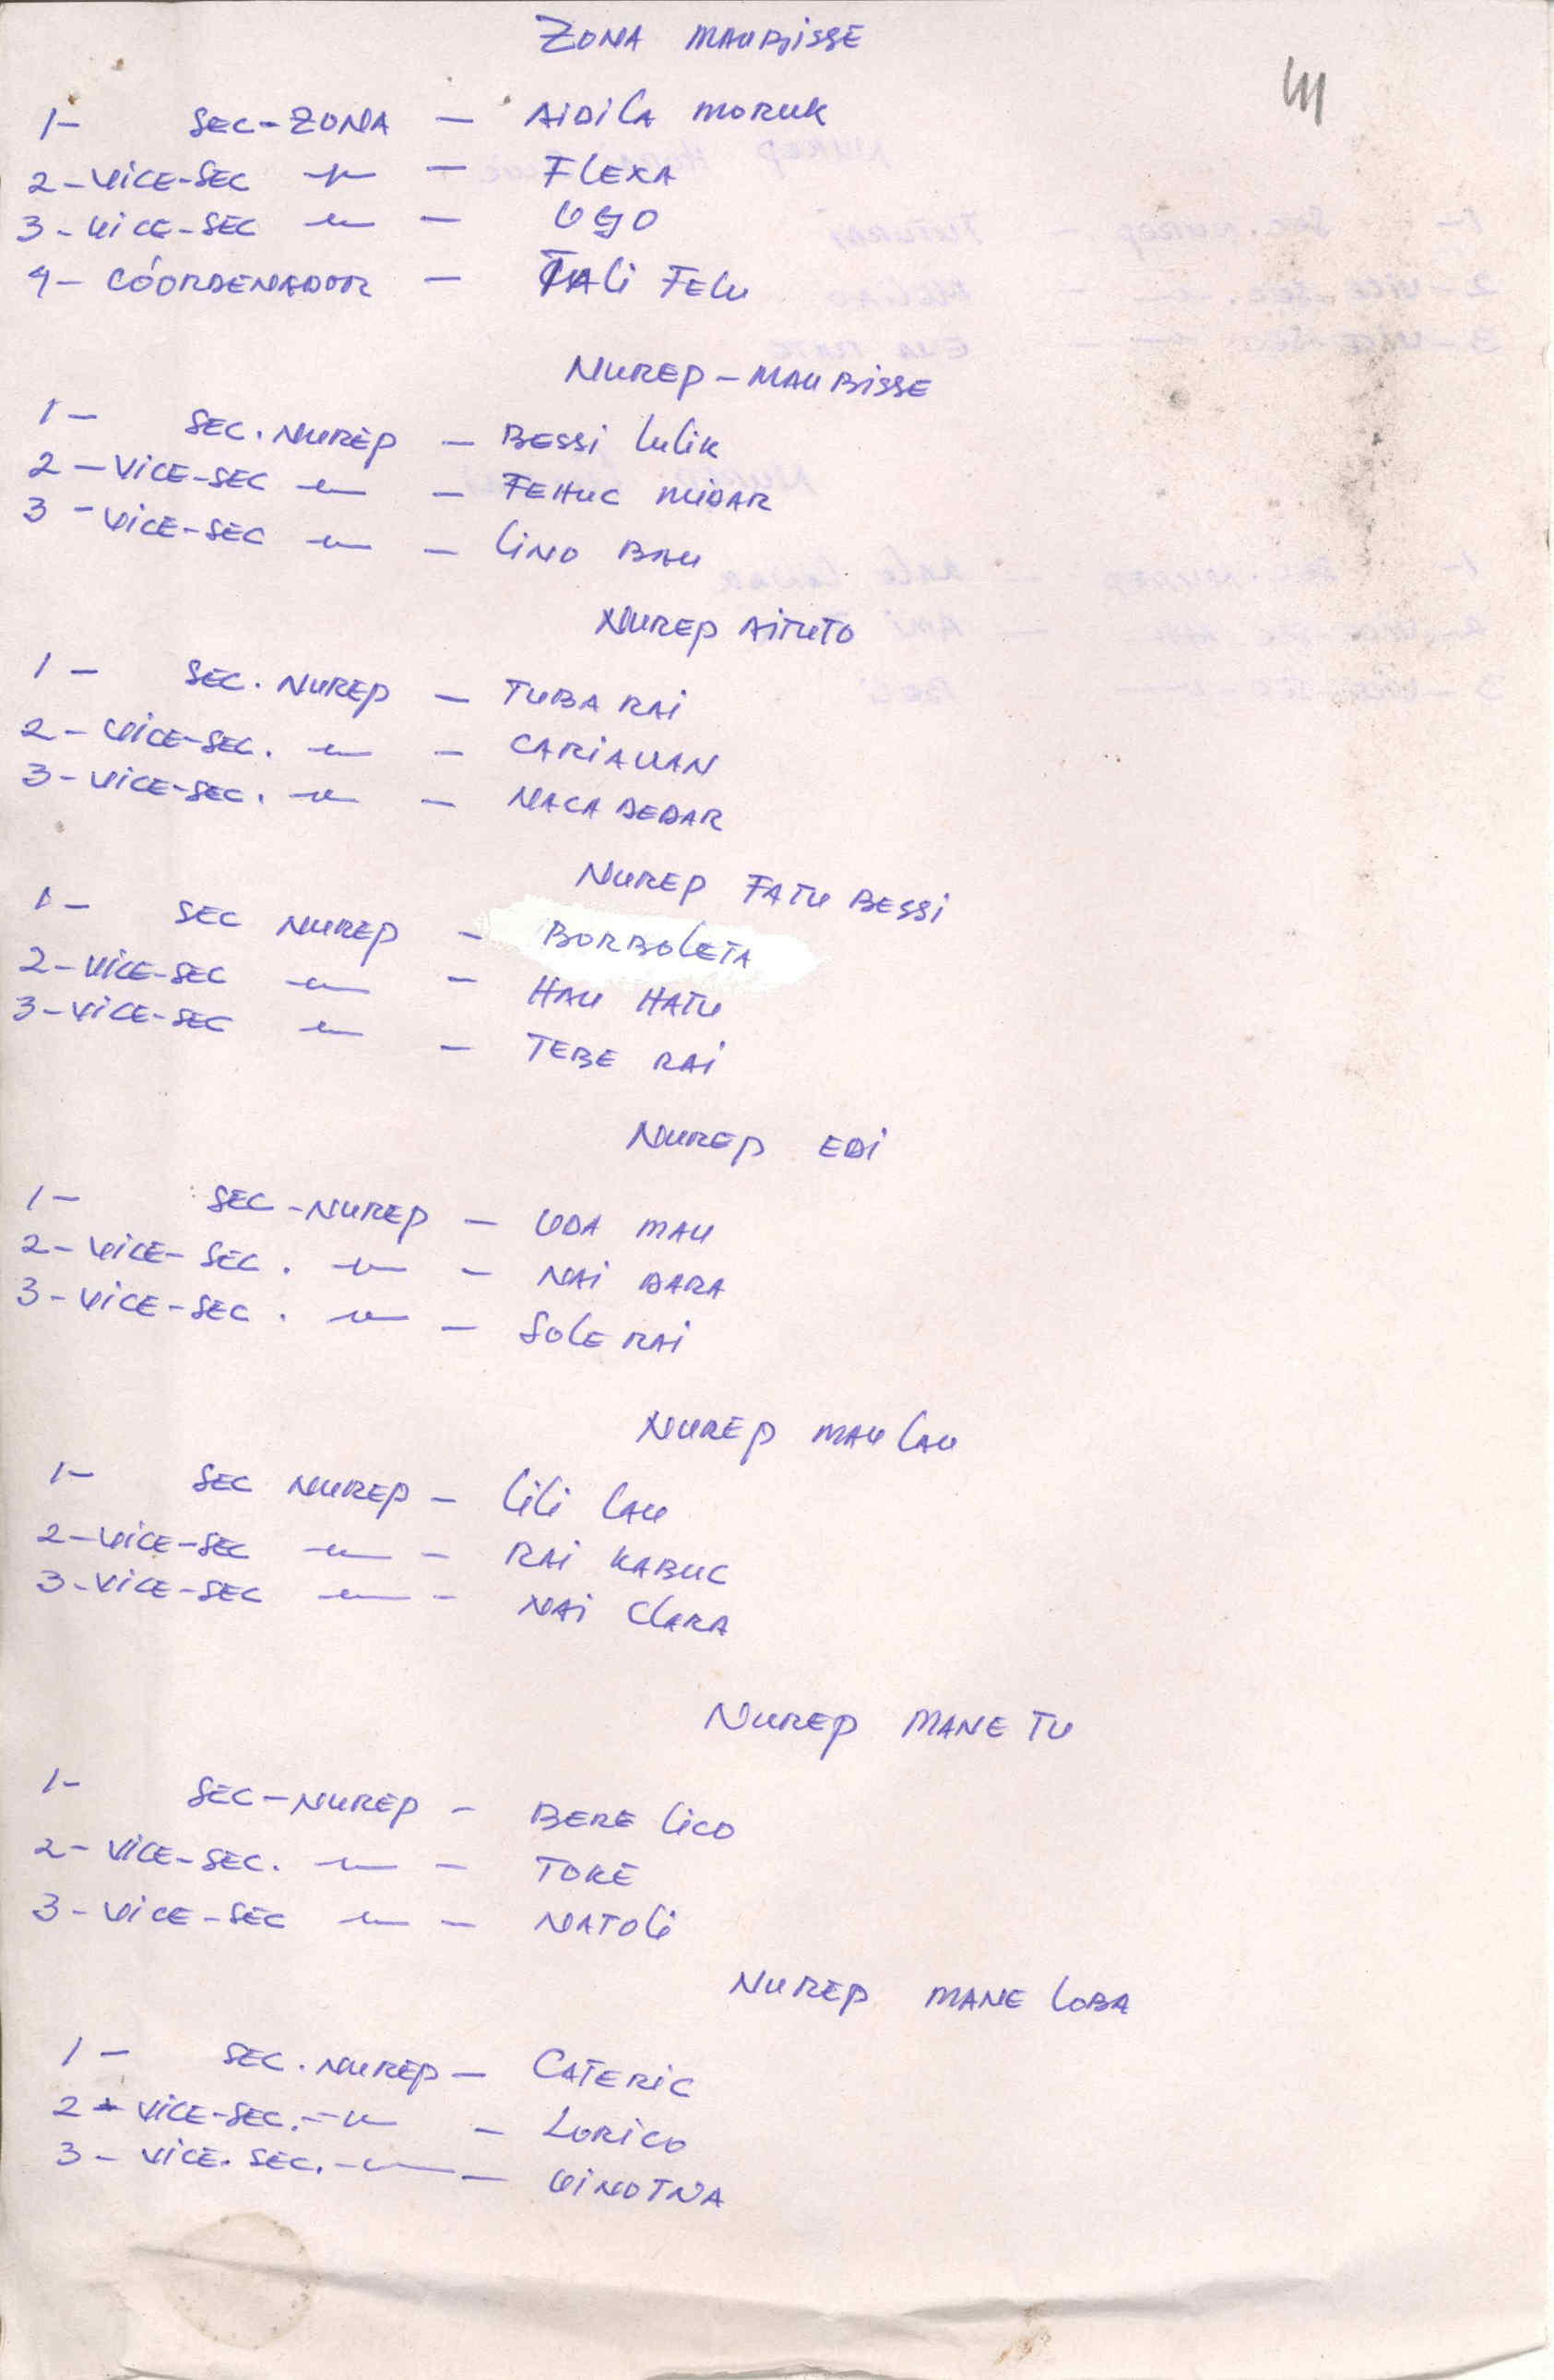 ZONA MAUBISSE
1- SEC-ZONA — AIDILA MORUK
2-VICE-SEC -"- — FLEXA
3-VICE-SEC -"- — UGO
4- CÓORDENADOR — TALI FELU
NUREP-MAUBISSE
1- SEC.NUREP — BESSI LULIK
2-VICE-SEC -"- — FEHUC MIDAR
3-VICE-SEC -"- — LINO BAU
NUREP AITUTO
1- SEC. NUREP — TUBA RAI
2-VICE-SEC. -"- — CARIAUAN
3-VICE-SEC. -"- — NACA DEDAR
NUREP FATU BESSI
1- SEC NUREP — BORBOLETA
2-VICE-SEC -"- — HAU HATU
3-VICE-SEC -"- — TEBE RAI
NUREP EDI
1- SEC-NUREP — UDA MAU
2-VICE-SEC. -"- — NAI DARA
3-VICE-SEC. -"- — SOLE RAI
NUREP MAULAU
1- SEC NUREP — LILI LAU
2-VICE-SEC -"- — RAI KABUC
3-VICE-SEC -"- — NAI CLARA
NUREP MANE TU
1- SEC-NUREP — BERE LICO
2-VICE-SEC. -"- — TOKE
3-VICE-SEC -"- — NATOLI
NUREP MANE LOBA
1- SEC.NUREP — CATERIC
2-VICE-SEC. -"- — LORICO
3-VICE.SEC. -"- — VINOTNA